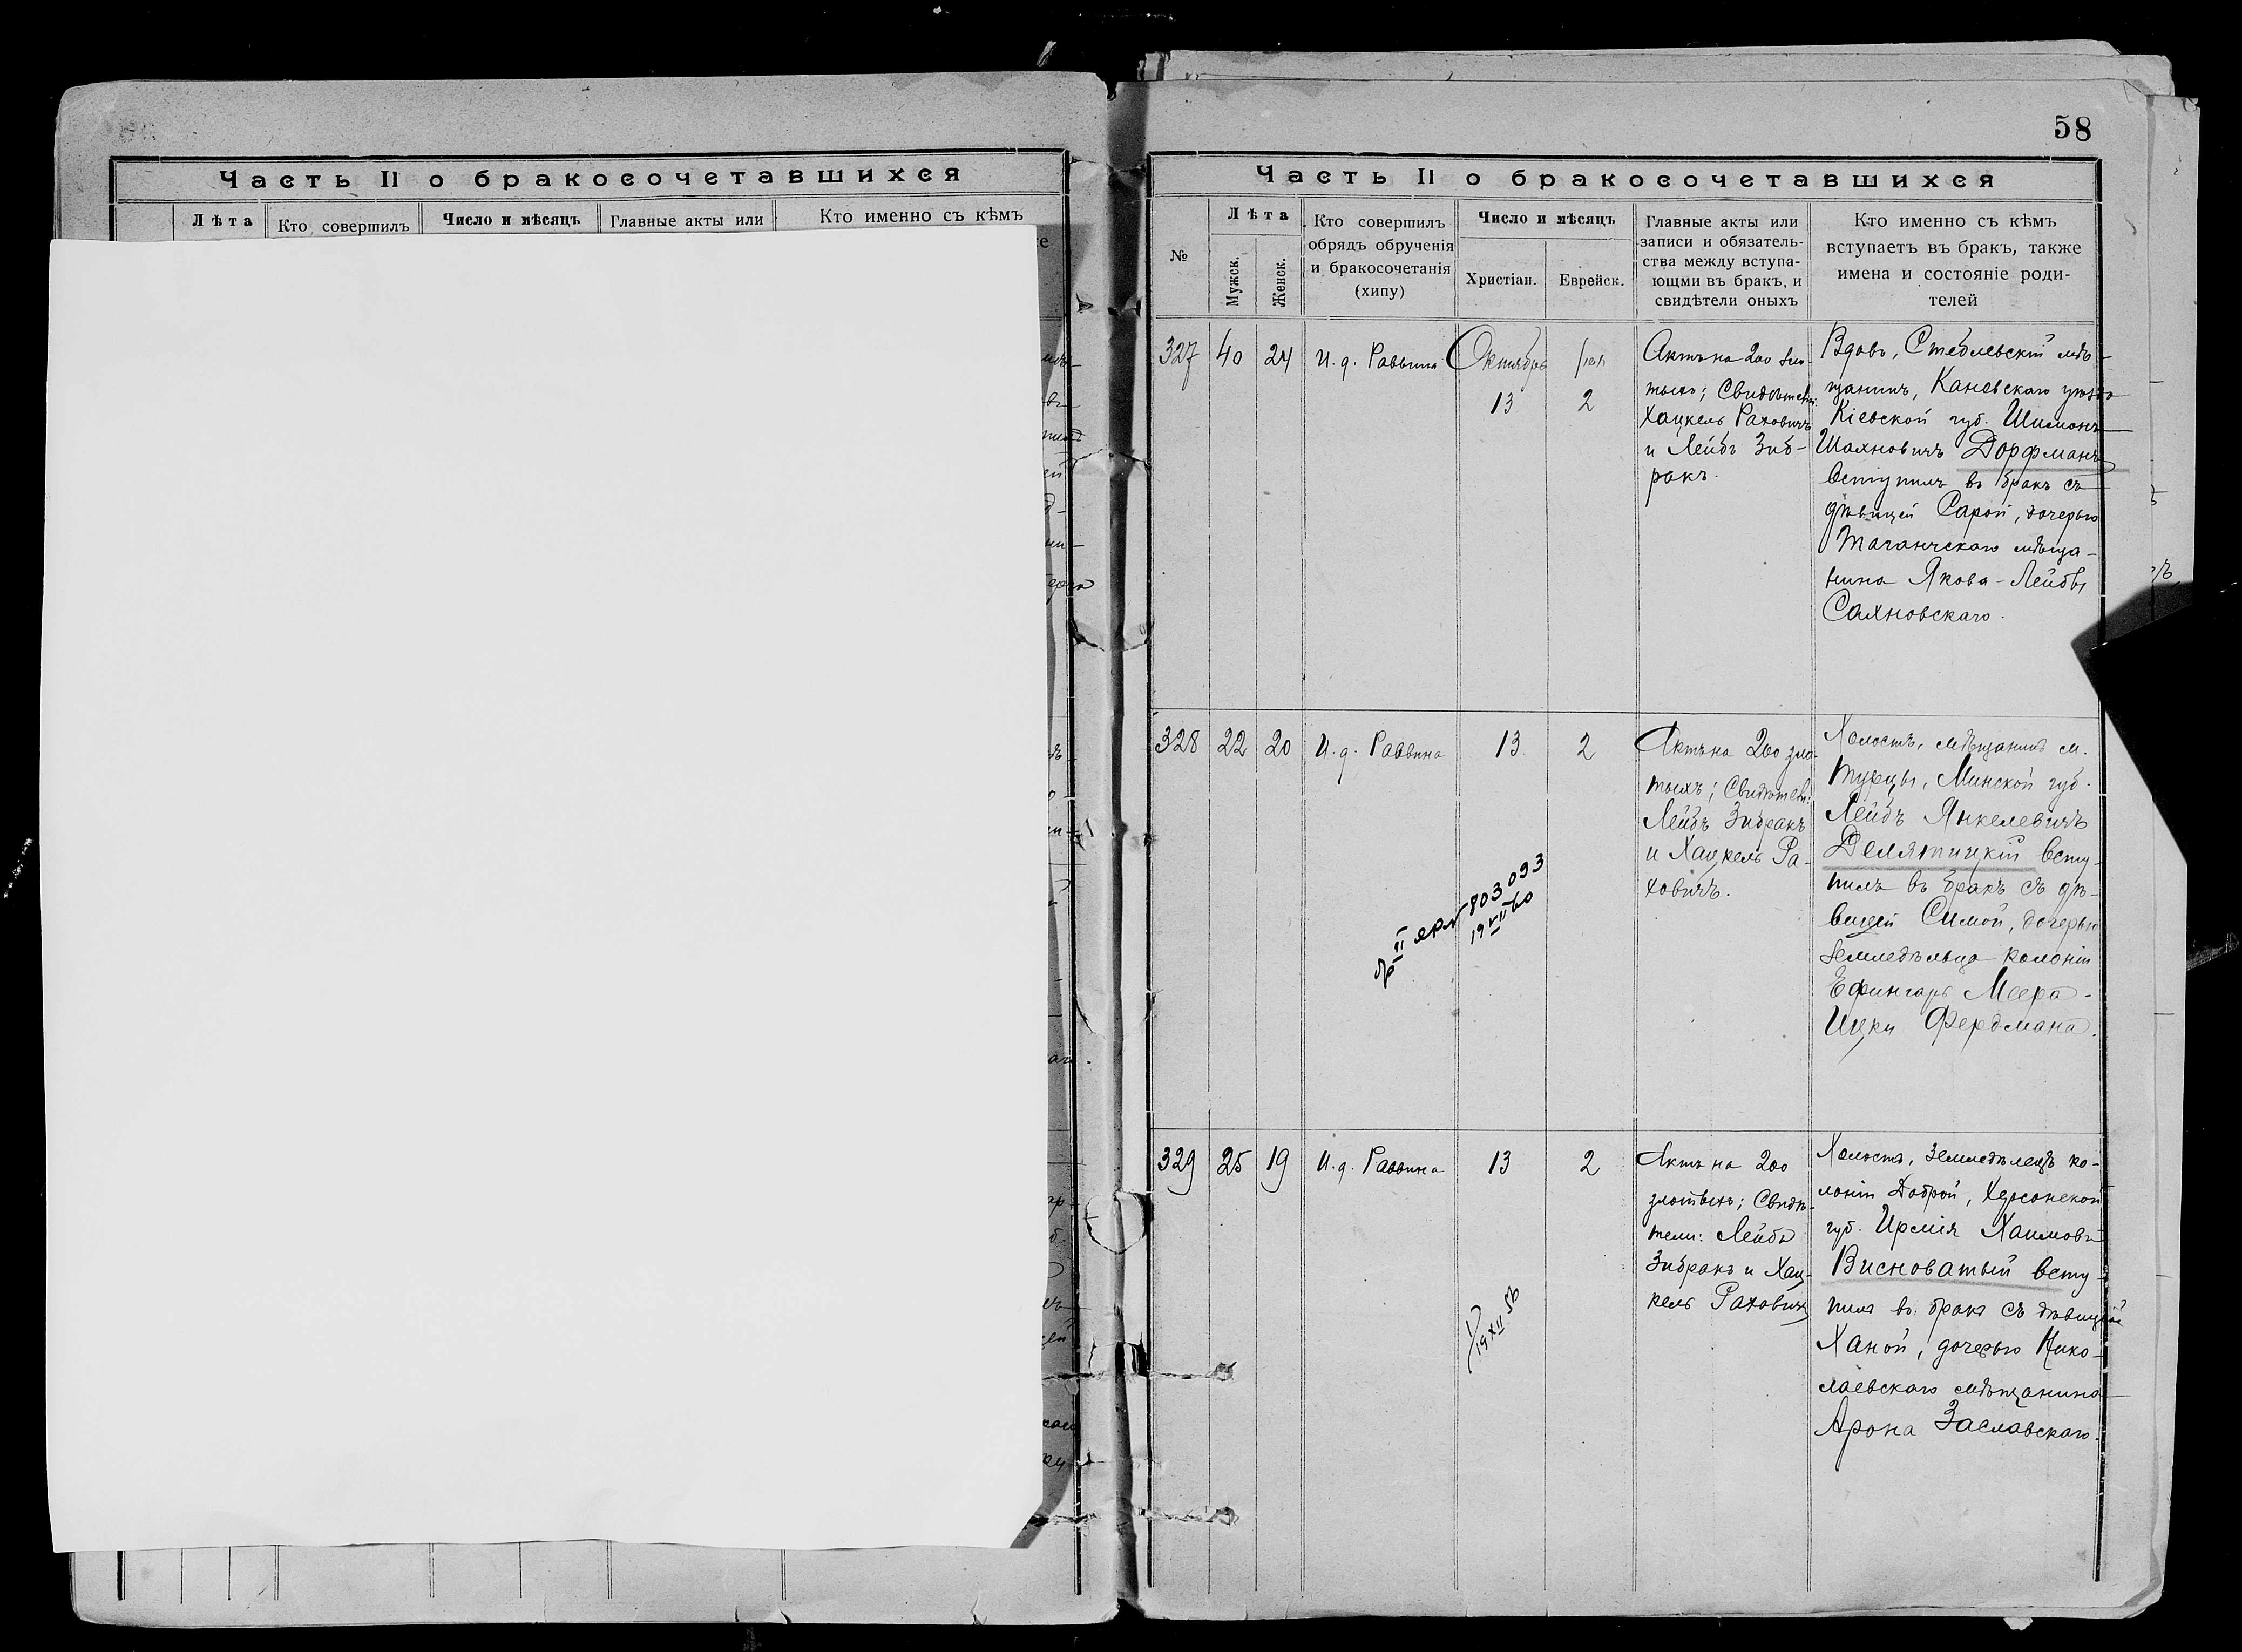 58
Часть II о бракосочетавшихся
Лѣта
Кто совершилъ
Число и мѣсяцъ
Главные акты или
Кто именно съ кѣмъ
Часть II о бракосочетавшихся
№
Лѣта
Мужск.
Женск.
Кто совершилъ
обрядъ обрученія
и бракосочетанія
(хипу)
Число и мѣсяцъ
Христіан.
Еврейск.
Главные акты или
записи и обязатель-
ства между вступа-
ющми въ бракъ, и
свидѣтели оныхъ
Кто именно съ кѣмъ
вступаетъ въ бракъ, также
имена и состояніе роди-
телей
327
40
24
И. д. Раввина
Октябрь
13
2
Актъ на 200 зло-
тыхъ; Свидѣтели:
Хацкель Раховичъ
и Лейбъ Зиб-
ракъ.
Вдовъ, Стеблевскій мѣ-
щанинъ, Каневскаго уѣзда
Кіевской губ. Шимонъ
Шахновичъ Дорфманъ
вступилъ въ бракъ съ
дѣвицей Сарой, дочерью
Таганчскаго мѣща-
нина Якова-Лейбы
Сахновскаго.
328
22
20
И. д. Раввина
13
2
Актъ на 200 зло-
тыхъ; Свидѣтели:
Лейбъ Зибракъ
и Хацкель Ра-
ховичъ.
Холостъ, мѣщанинъ м.
Турецъ, Минской губ.
Лейбъ Янкелевичъ
Делятицкій всту-
пилъ въ бракъ съ дѣ-
вицей Симой, дочерью
земледѣльца колоніи
Ефингаръ Меера-
Ицки Фердмана.
803093
19 VII 60
329
25
19
И. д. Раввина
13
2
Актъ на 200
злотыхъ; Свидѣ-
тели: Лейбъ
Зибракъ и Хац-
кель Раховичъ
Холостъ, земледѣлецъ ко-
лоніи Доброй, Херсонской
губ. Ирмія Хаимовъ
Висноватый всту-
пилъ въ бракъ съ дѣвицей
Ханой, дочерью Нико-
лаевскаго мѣщанина
Арона Заславскаго.
19 XII 56